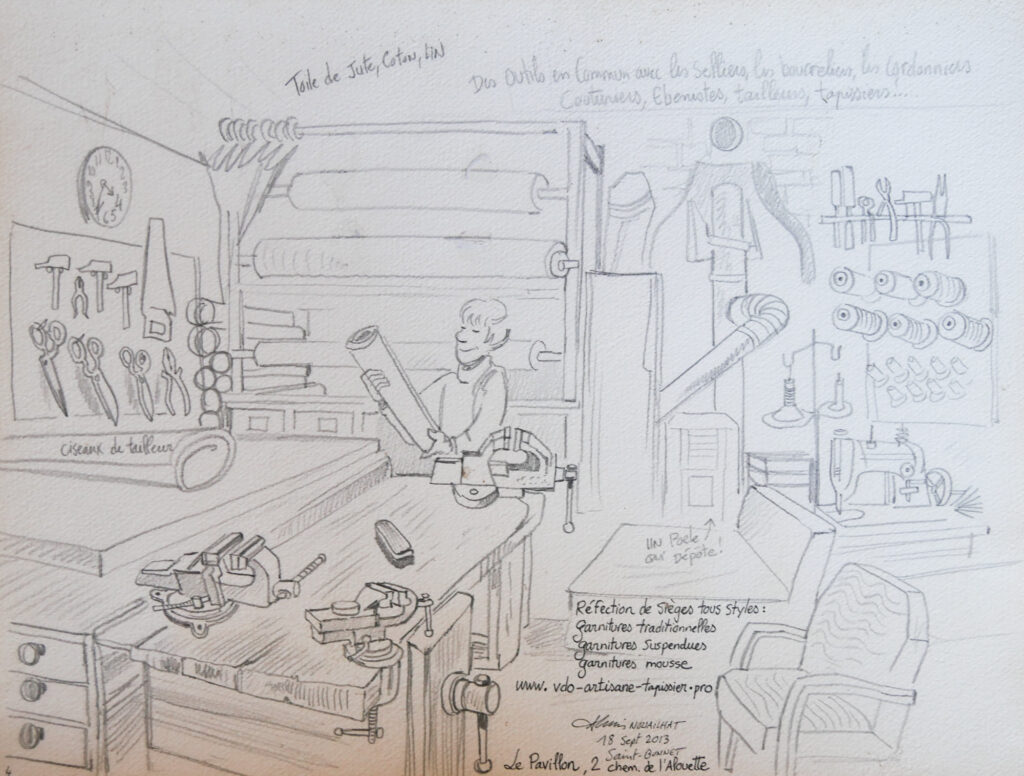 Toile de Jute, Coton, Lin
Des outils en Commun avec les Selliers, les bourreliers, les Cordonniers
Couturiers, Ebenistes, tailleurs, tapissiers...
ciseaux de tailleur
UN Poele
qui Dépote!
Réfection de Sièges tous Styles :
garnitures traditionnelles
garnitures Suspendues
garnitures mousse
www.vdo-artisane-tapissier.pro
NOUAILHAT
18 Sept 2013
Saint-BONNET
Le Pavillon, 2 chem. de l'Alouette
4